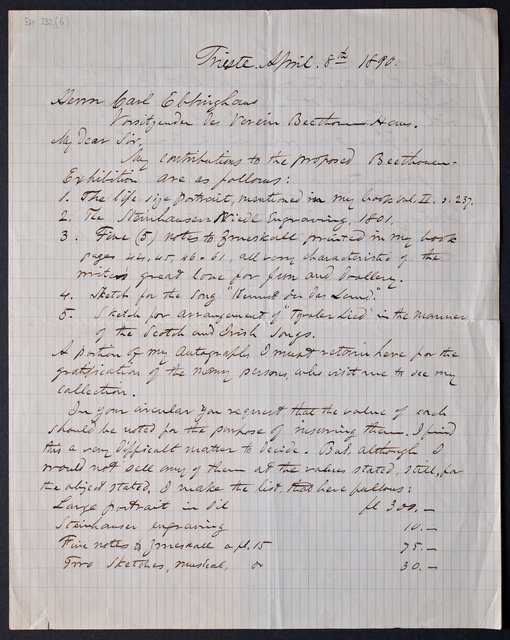 Trieste. April. 8th 1890.
Herrn Carl Ebbinghaus
Vorsitzender des Verein Beethoven-Haus.
My dear Sir,
My contributions to the proposed Beethoven-
Exhibition are as follows:
1. The life size portrait, mentioned in my book vol. II. p. 237.
2. The Steinhauser-Riedl Engraving, 1801.
3. Five (5) notes to Zmeskall printed in my book
pages 44, 45, 46 & 61, all very characteristic of the
writer's great love for fun and drollery.
4. Sketch for the song "Kennst du das Land".
5. Sketch for arrangement of "Tyroler Lied" in the manner
of the Scotch and Irish Songs.
A portion of my Autographs I must retain here for the
gratification of the many persons, who visit me to see my
collection.
In your circular you request that the value of each
should be noted for the purpose of insuring them. I find
this a very difficult matter to decide. But, although I
would not sell any of them at the values stated, still, for
the object stated, I make the list, that here follows:
Large portrait in Oil fl. 300.—
Steinhauser engraving 10.—
Five notes to Zmeskall a fl. 15 75.—
Two Sketches, musical, 30.—